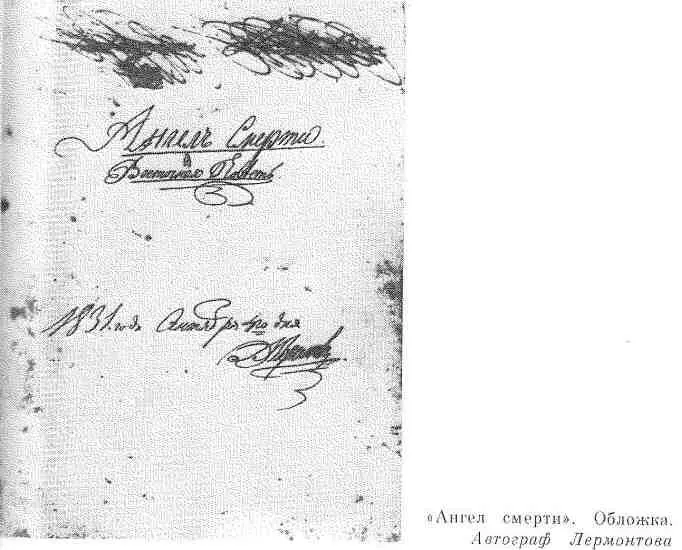 Ангелъ Смерти.
Восточная Повѣсть
1831. года Сентября 4го дня
«Ангел смерти». Обложка.
Автограф Лермонтова